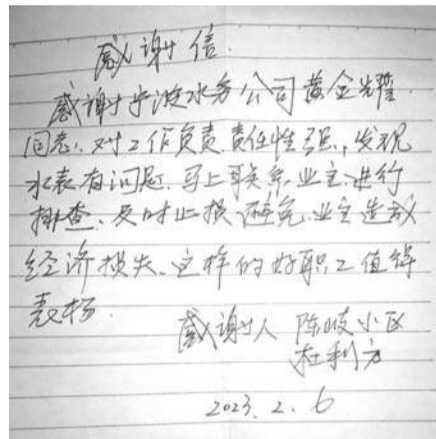 感谢信.
感谢宁波水务公司黄金耀
同志,对工作负责责任性强,发现
水表有问题,马上联系业主进行
排查、及时止损,避免业主造成
经济损失.这样的好职工值得
表杨.
感谢人 陈岐小区
杜利方
2023.2.6